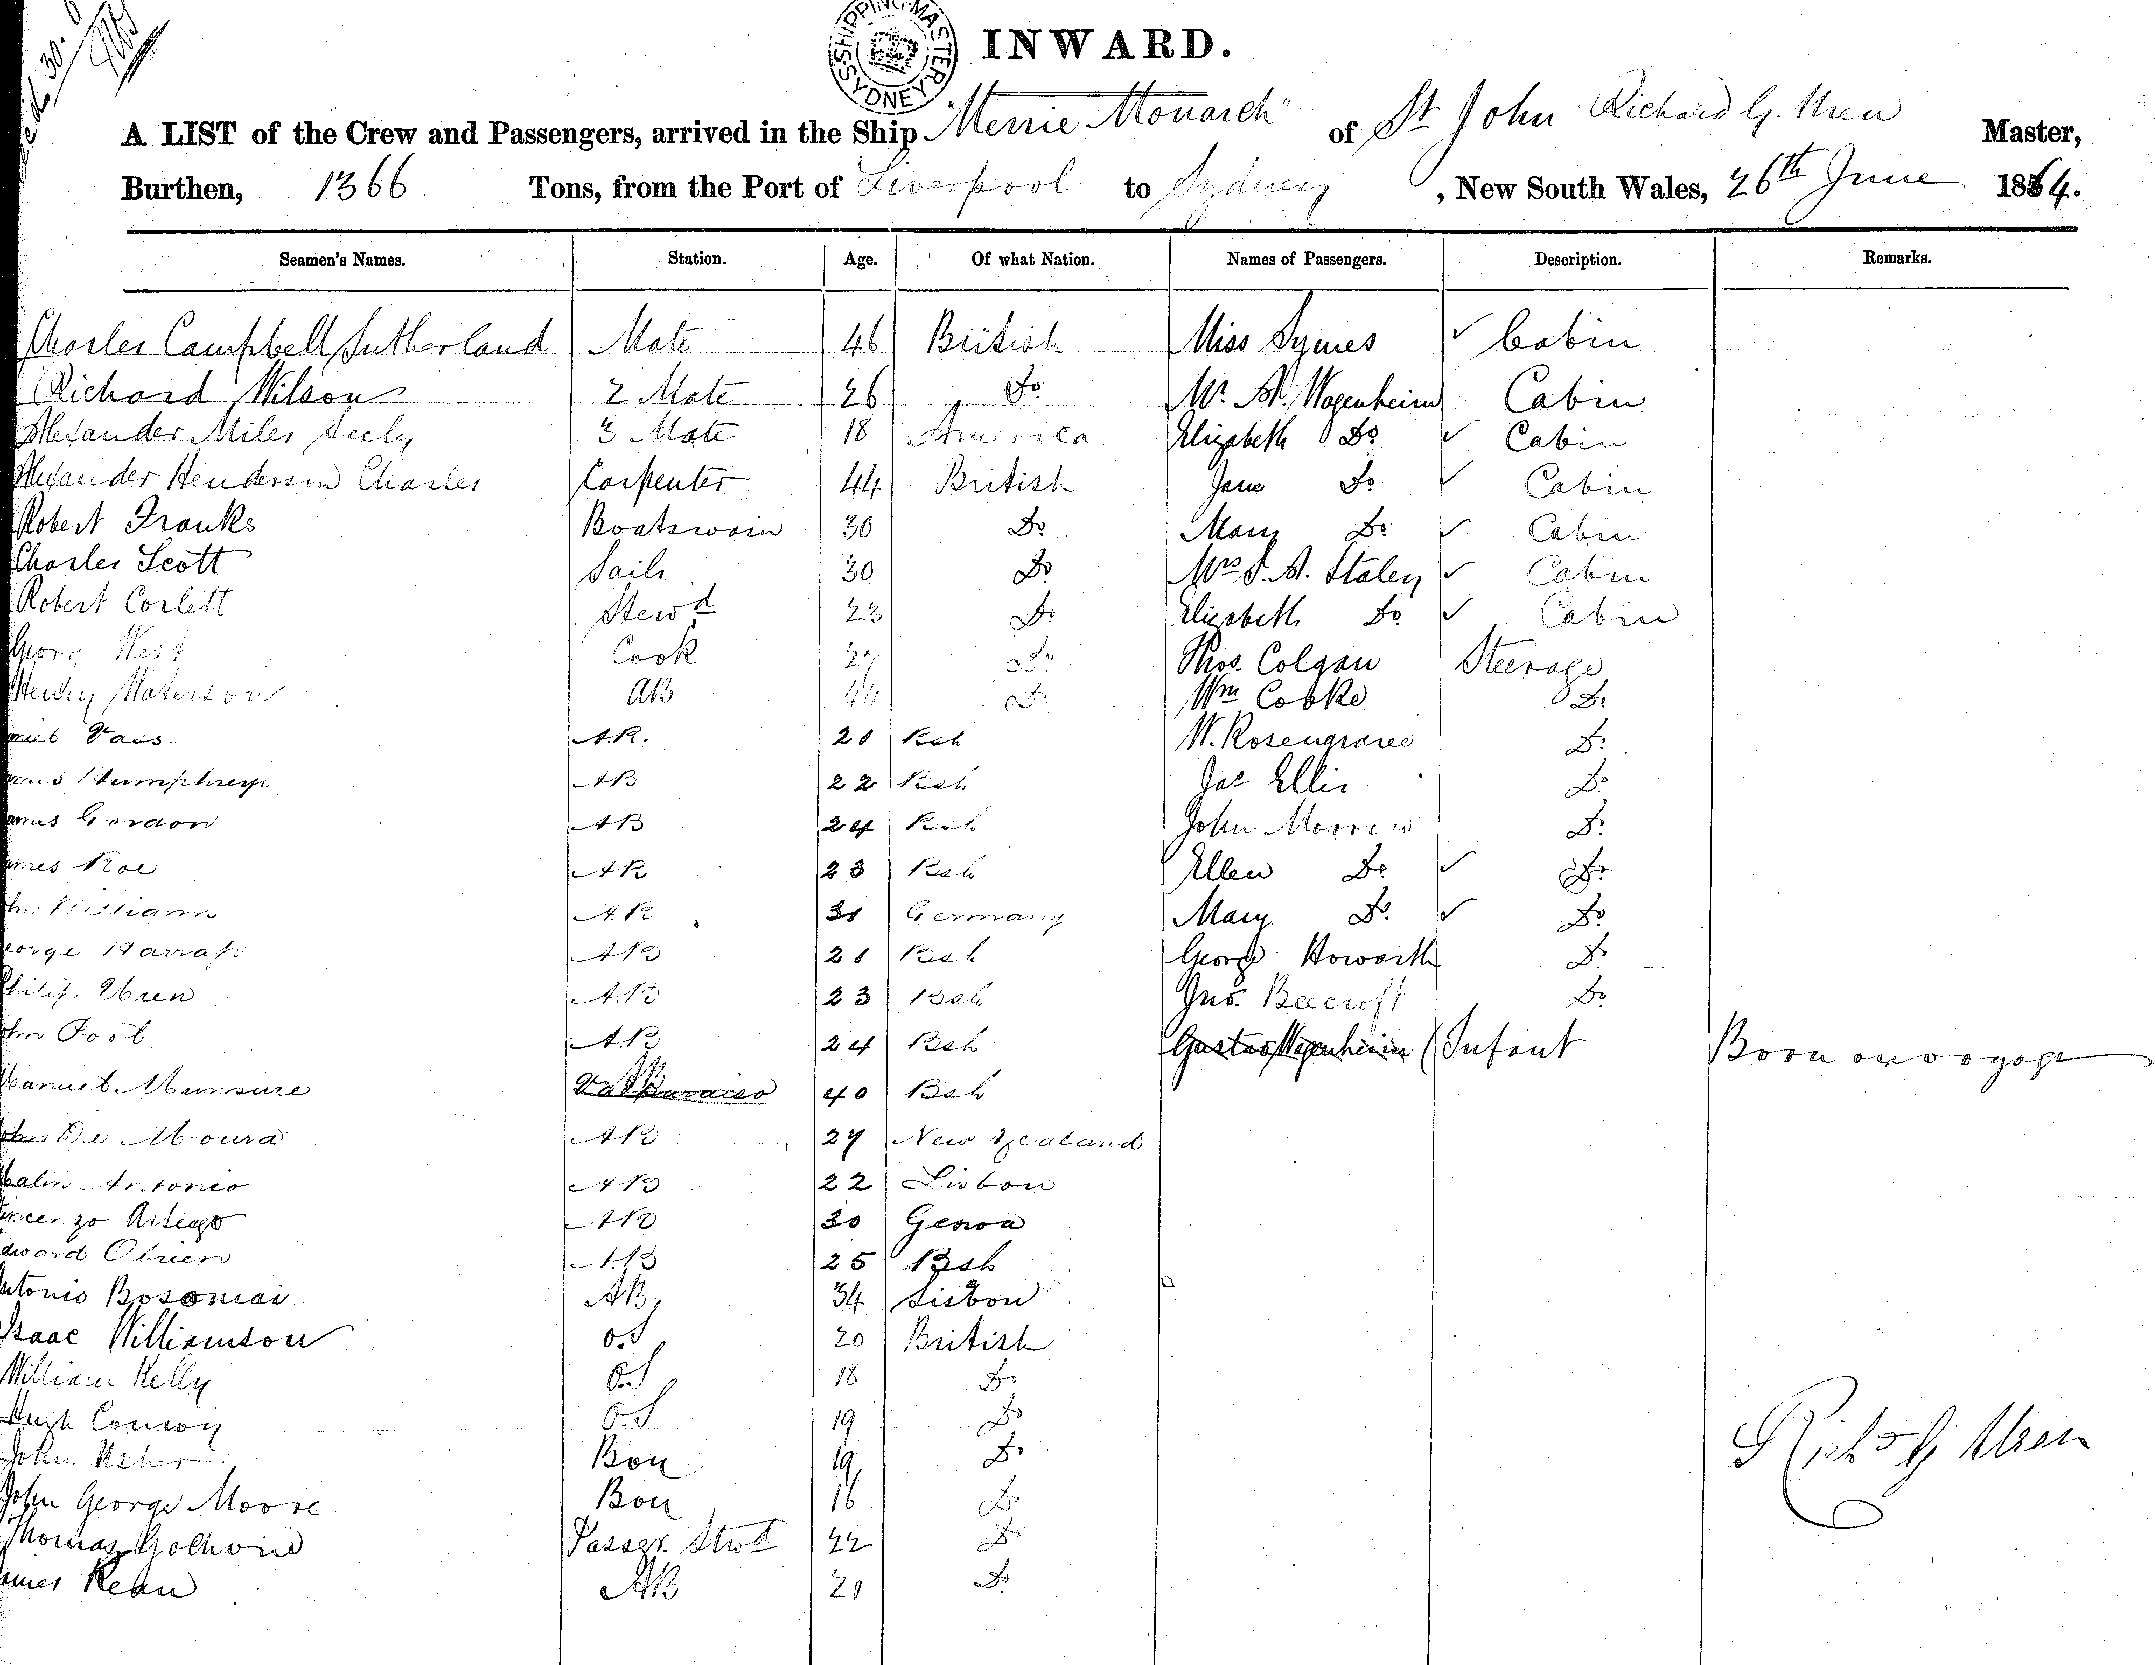 SHIPPING MASTER SYDNEY
INWARD.
A LIST of the Crew and Passengers, arrived in the Ship "Merrie Monarch" of St John Richard G. Uren Master,
Burthen, 1366 Tons, from the Port of Liverpool to Sydney, New South Wales, 26th June 1864.
Seamen's Names. Station. Age. Of what Nation. Names of Passengers. Description. Remarks.
Charles Campbell Sutherland Mate 46 British Miss Symes ✓ Cabin
Richard Wilson 2 Mate 26 Do Mr. A. Wagenheim Cabin
Alexander Miles Seely 3 Mate 18 America Elizabeth Do ✓ Cabin
Alexander Henderson Charles Carpenter 44 British Jane Do ✓ Cabin
Robert Franks Boatswain 30 Do Mary Do ✓ Cabin
Charles Scott Sails 30 Do Mrs S. A. Staley ✓ Cabin
Robert Corlett Stewd 23 Do Elizabeth Do ✓ Cabin
Georg West Cook 27 Do Thos. Colgan Steerage
Henry Materson AB 44 Do Wm Cooke Do
Vais A.B. 21 Bsh W. Rosengrave Do
Humphreys AB 22 Bsh Jas Ellis Do
James Gordon AB 24 Bsh John Morrow Do
James Roe AB 23 Bsh Ellen Do ✓ Do
William AB 31 Germany Mary Do ✓ Do
George Harrap AB 21 Bsh George Howorth Do
Philip Uren AB 23 Bsh Jno. Beecroft Do
John Pool AB 24 Bsh Gustav Wagenheim (Infant Born on voyage
Manuel Munsure Valparaiso AB 40 Bsh
John De Moura AB 27 New Zealand
Antonio AB 22 Lisbon
Vincenzo AB 30 Genoa
Edward Obrien AB 25 Bsh
Antonio Bosomai AB 34 Lisbon
Isaac Williamson O.S 20 British
William Kelly O.S 18 Do
Hugh Conroy O.S 19 Do
John Boy 19 Do
John George Moore Boy 16 Do
Thomas Passgr. Stwd 22 Do
James Kean AB 21 Do
Richd G Uren